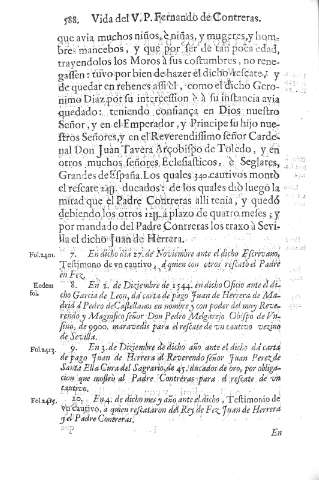 588. Vida del V. P. Fernando de Contreras.
que avia muchos niños, è niñas, y mugeres, y hom-
bres mancebos, y que por ser de tan poca edad,
trayendolos los Moros à sus costumbres, no rene-
gassen: tuvo por bien de hazer el dicho rescate, y
de quedar en rehenes assi èl, como el dicho Gero-
nimo Diaz, por su intercession è à su instancia avia
quedado: teniendo confiança en Dios nuestro
Señor, y en el Emperador, y Principe su hijo nue-
stros Señores, y en el Reverendissimo señor Carde-
nal Don Juan Tavera Arçobispo de Toledo, y en
otros muchos señores Eclesiasticos, è Seglares,
Grandes de España. Los quales 340. cautivos montò
el rescate 24U. ducados: de los quales diò luego la
mitad que el Padre Contreras alli tenia, y quedò
debiendo los otros 12U. à plazo de quatro meses; y
por mandado del Padre Contreras los traxo à Sevi-
lla el dicho Juan de Herrera.
Fol.2401. 7. En dicho dia 27. de Noviembre ante el dicho Escrivano,
Testimono de vn cautivo, à quien con otros rescatò el Padre
en Fez.
Eodem 8. En 2. de Diciembre de 1544. en dicho Oficio ante el di-
fol. cho Garcia de Leon, dà carta de pago Juan de Herrera de Ma-
drid à Pedro de Castellanos en nombre y con poder del muy Reve-
rendo y Magnifico señor Don Pedro Melgarejo Obispo de Vn-
sivo, de 9900. maravedis para el rescate de vn cautivo vezino
de Sevilla.
Fol.2413. 9. En 3. de Diciembre de dicho año ante el dicho dà carta
de pago Juan de Herrera al Reverendo señor Juan Perez de
Santa Ella Cura del Sagrario, de 45. ducados de oro, por obliga-
cion que mostrò al Padre Contreras para el rescate de vn
cautivo.
Fol.2415. 10. En 4. de dicho mes y año ante el dicho, Testimono de
vn cautivo, à quien rescataron del Rey de Fez Juan de Herrera
y el Padre Contreras.
En